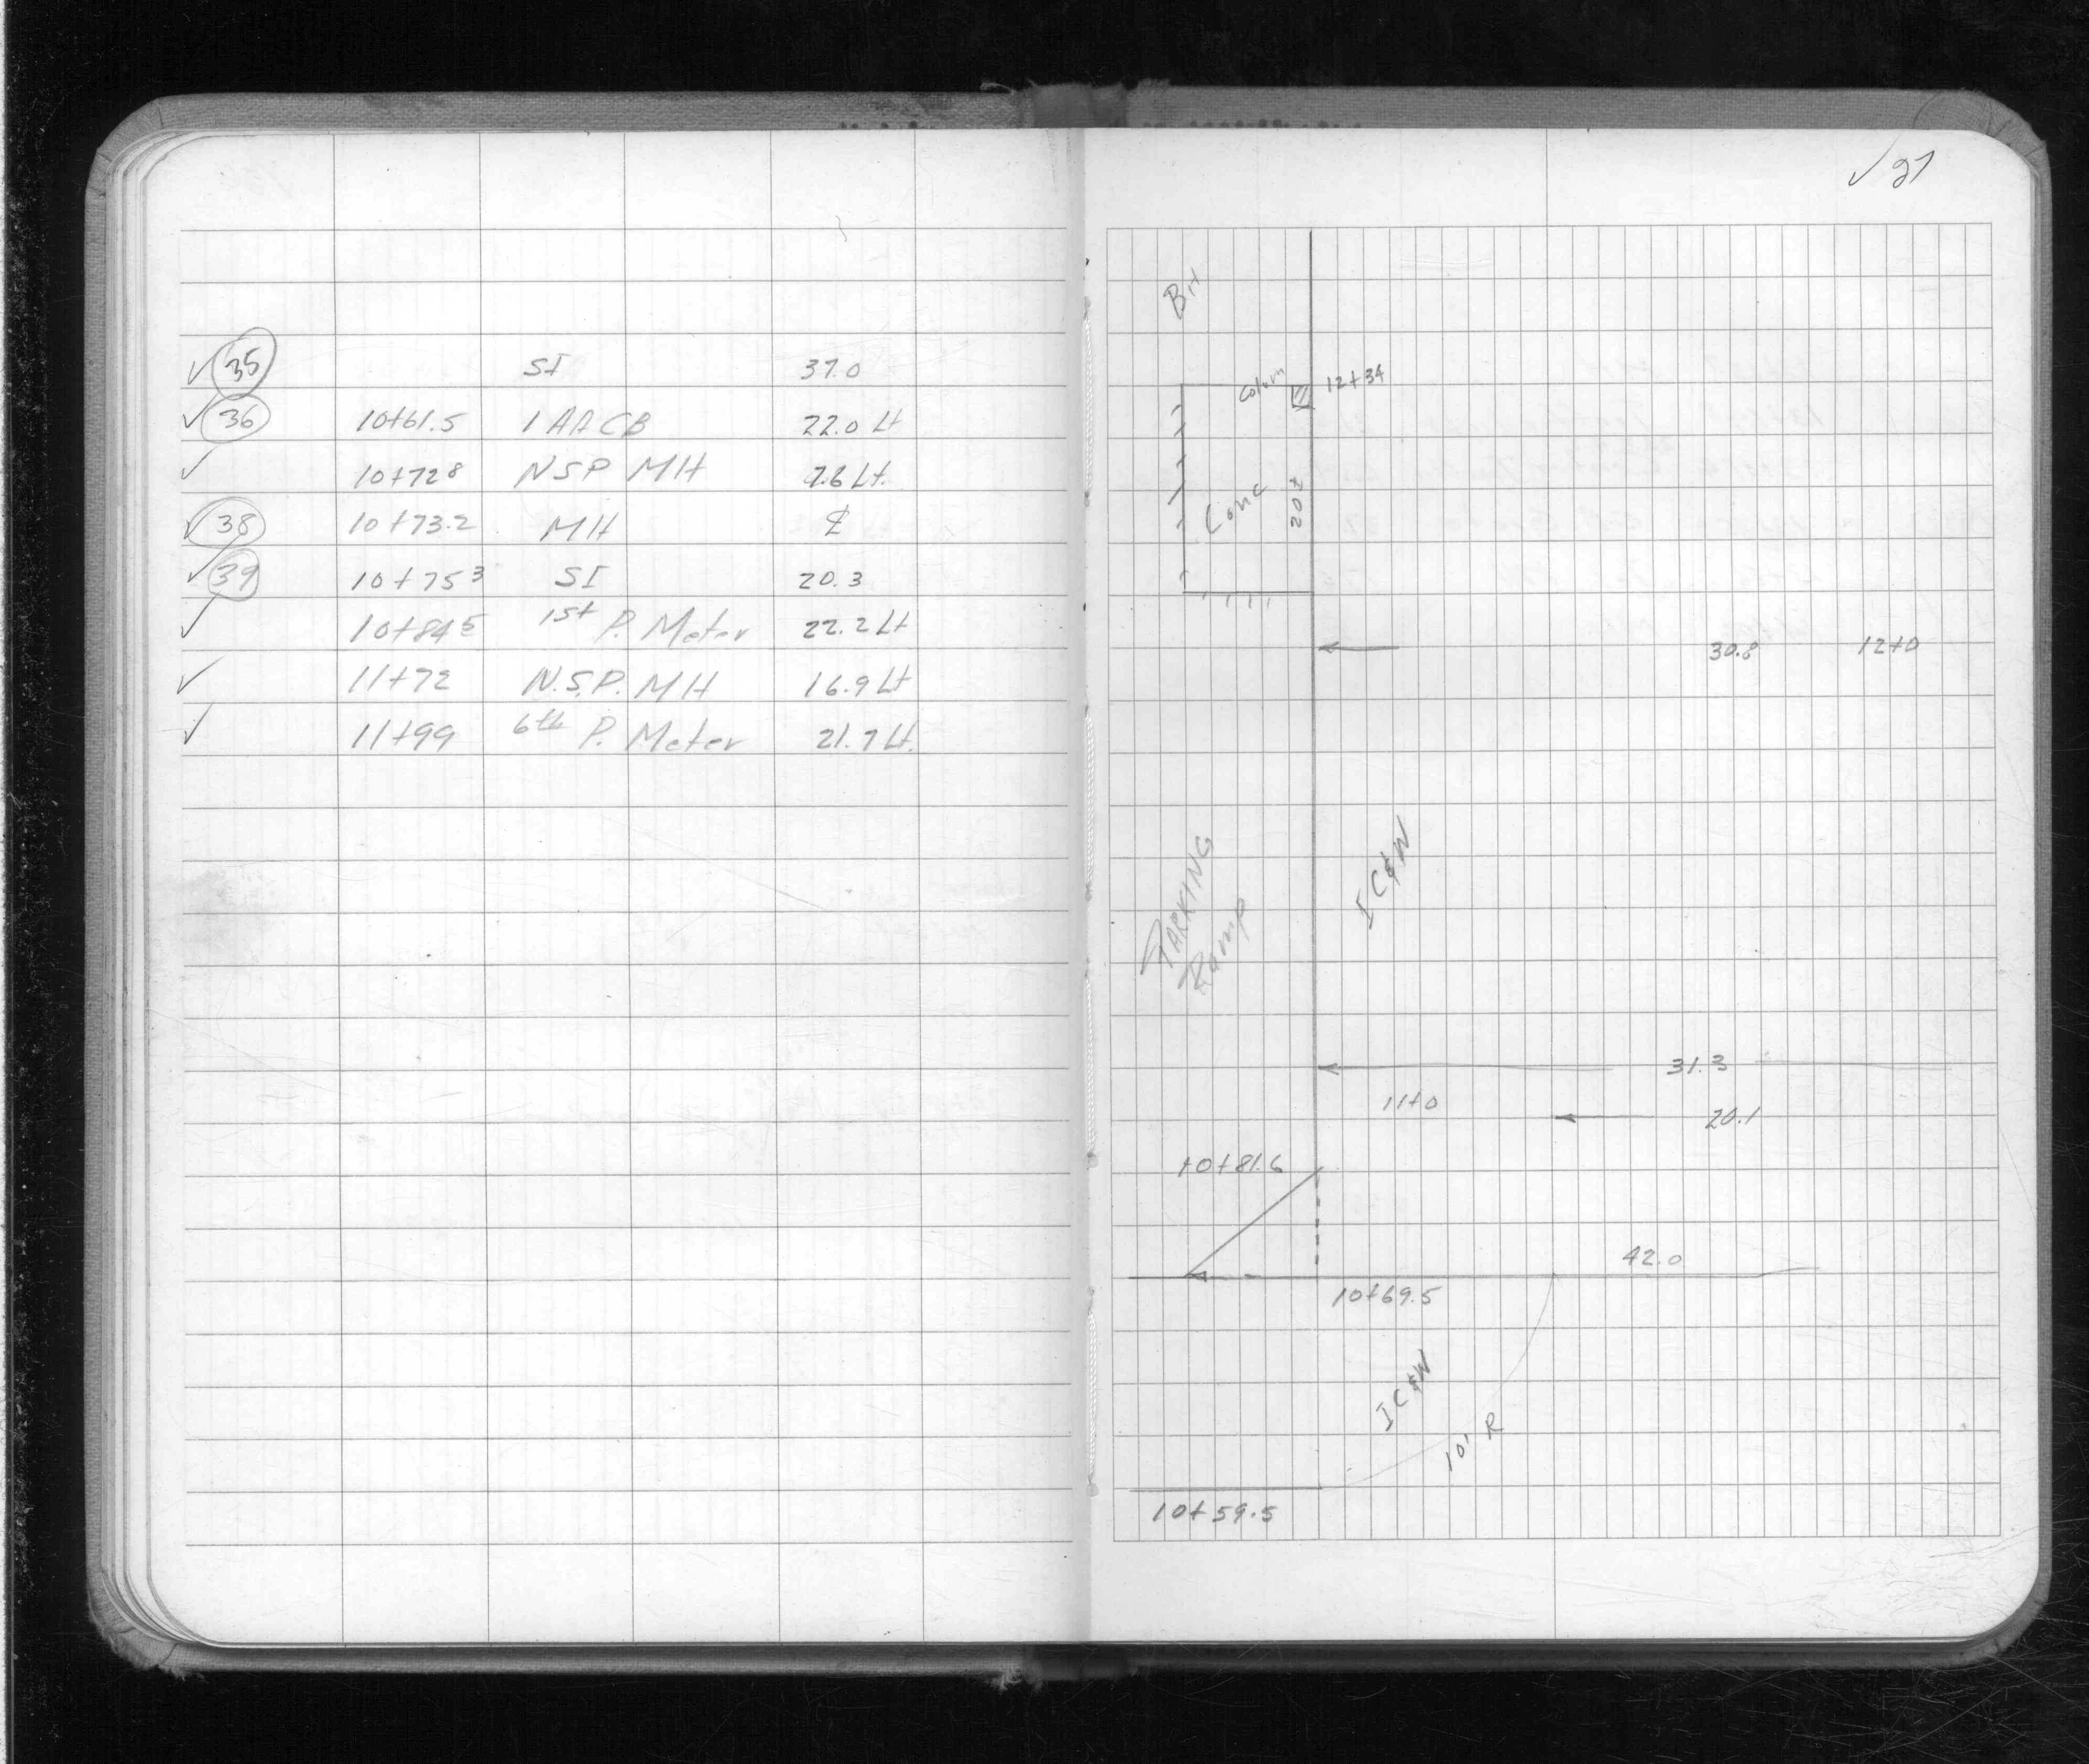 ✓ 35 SI 37.0
✓ 36 10+61.5 1 AACB 22.0 Lt
✓ 10+72.8 NSP MH 7.6 Lt.
✓ 38 10+73.2 MH ℄
✓ 39 10+75.3 SI 20.3
✓ 10+84.5 1st P. Meter 22.2 Lt
✓ 11+72 N.S.P. MH 16.9 Lt
✓ 11+99 6th P. Meter 21.7 Lt.
✓ 21
Colum 12+34
Conc
30.8 12+0
IC&W
PARKING
Ramp
31.3
11+0
20.1
10+81.6
42.0
10+69.5
IC&W
10' R
10+59.5